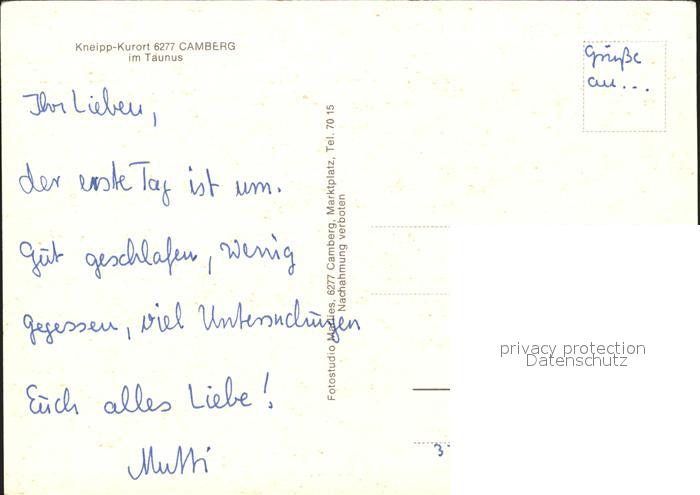 Kneipp-Kurort 6277 CAMBERG
im Taunus
Grüße
an...
Ihr Lieben,
der erste Tag ist um.
Gut geschlafen, wenig
gegessen, viel Untersuchungen
Euch alles Liebe!
Mutti
Fotostudio Marlies, 6277 Camberg, Marktplatz, Tel. 70 15
Nachahmung verboten
privacy protection
Datenschutz
3